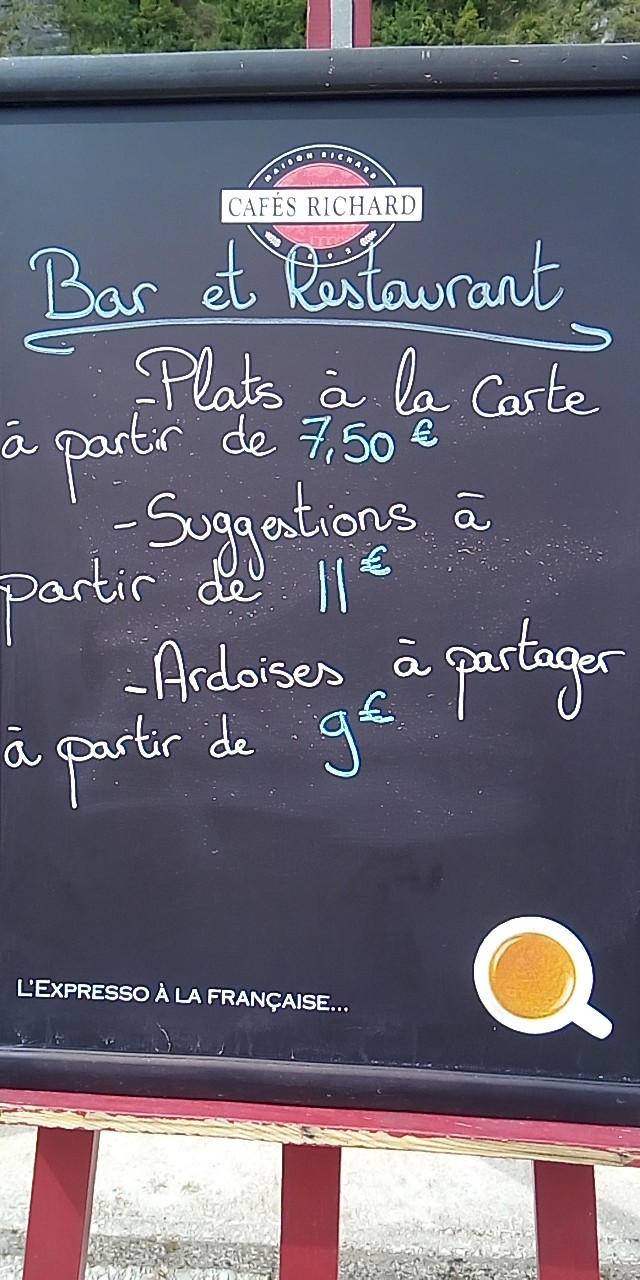 MAISON RICHARD
CAFÉS RICHARD
Bar et Restaurant
-Plats à la Carte
à partir de 7,50 €
-Suggestions à
partir de 11€
-Ardoises à partager
à partir de 9€
L'EXPRESSO À LA FRANÇAISE...